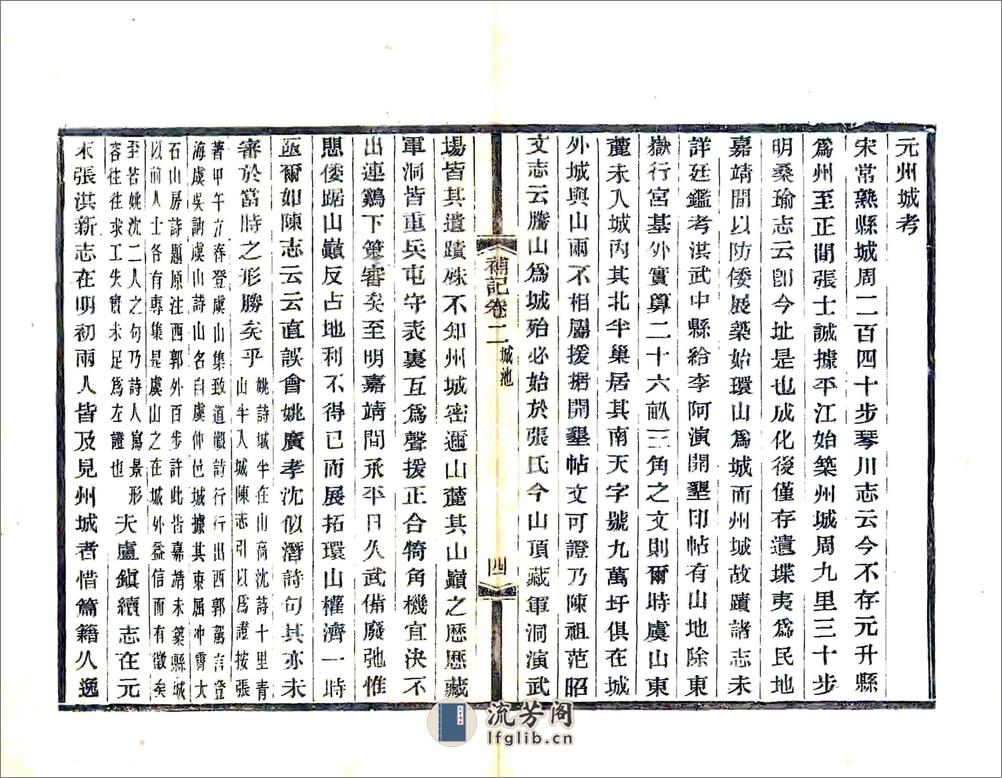 元州城考
宋常熟縣城周二百四十步琴川志云今不存元升縣
爲州至正間張士誠據平江始築州城周九里三十步
明桑瑜志云卽今址是也成化後僅存遺堞夷爲民地
嘉靖間以防倭展築始環山爲城而州城故蹟諸志未
詳廷鑑考洪武中縣給李阿演開墾印帖有山地除東
嶽行宮基外實算二十六畝三角之文則爾時虞山東
麓未入城內其北半巢居其南天字號九萬圩俱在城
外城與山兩不相屬援据開墾帖文可證乃陳祖范昭
文志云騰山爲城殆必始於張氏今山頂藏軍洞演武
補記卷二 城池 四
場皆其遺蹟殊不知州城密邇山麓其山巔之壓壓藏
軍洞皆重兵屯守表裏互爲聲援正合犄角機宜決不
出連鷄下策審矣至明嘉靖間承平日久武備廢弛惟
思倭踞山巔反占地利不得已而展拓環山權濟一時
亟爾如陳志云云直誤會姚廣孝沈似潛詩句其亦未
審於當時之形勝矣乎姚詩城半在山高沈詩十里靑
山半入城陳志引以爲證按張
著甲午立春登虞山集致道觀詩行行出西郭駕言登
海虞吳訥虞山詩山名自虞仲邑城據其東屈沖霄大
石山房詩題原注酉郭外百步許此皆嘉靖未築縣城
以前人士各有專集是虞山之在城外益信而有徵矣
至若姚沈二人之句乃詩人寫景形
容往往求工失實未足爲左證也夫盧鎭續志在元
末張洪新志在明初兩人皆及見州城者惜篇籍久逸
流芳阁
lfglib.cn